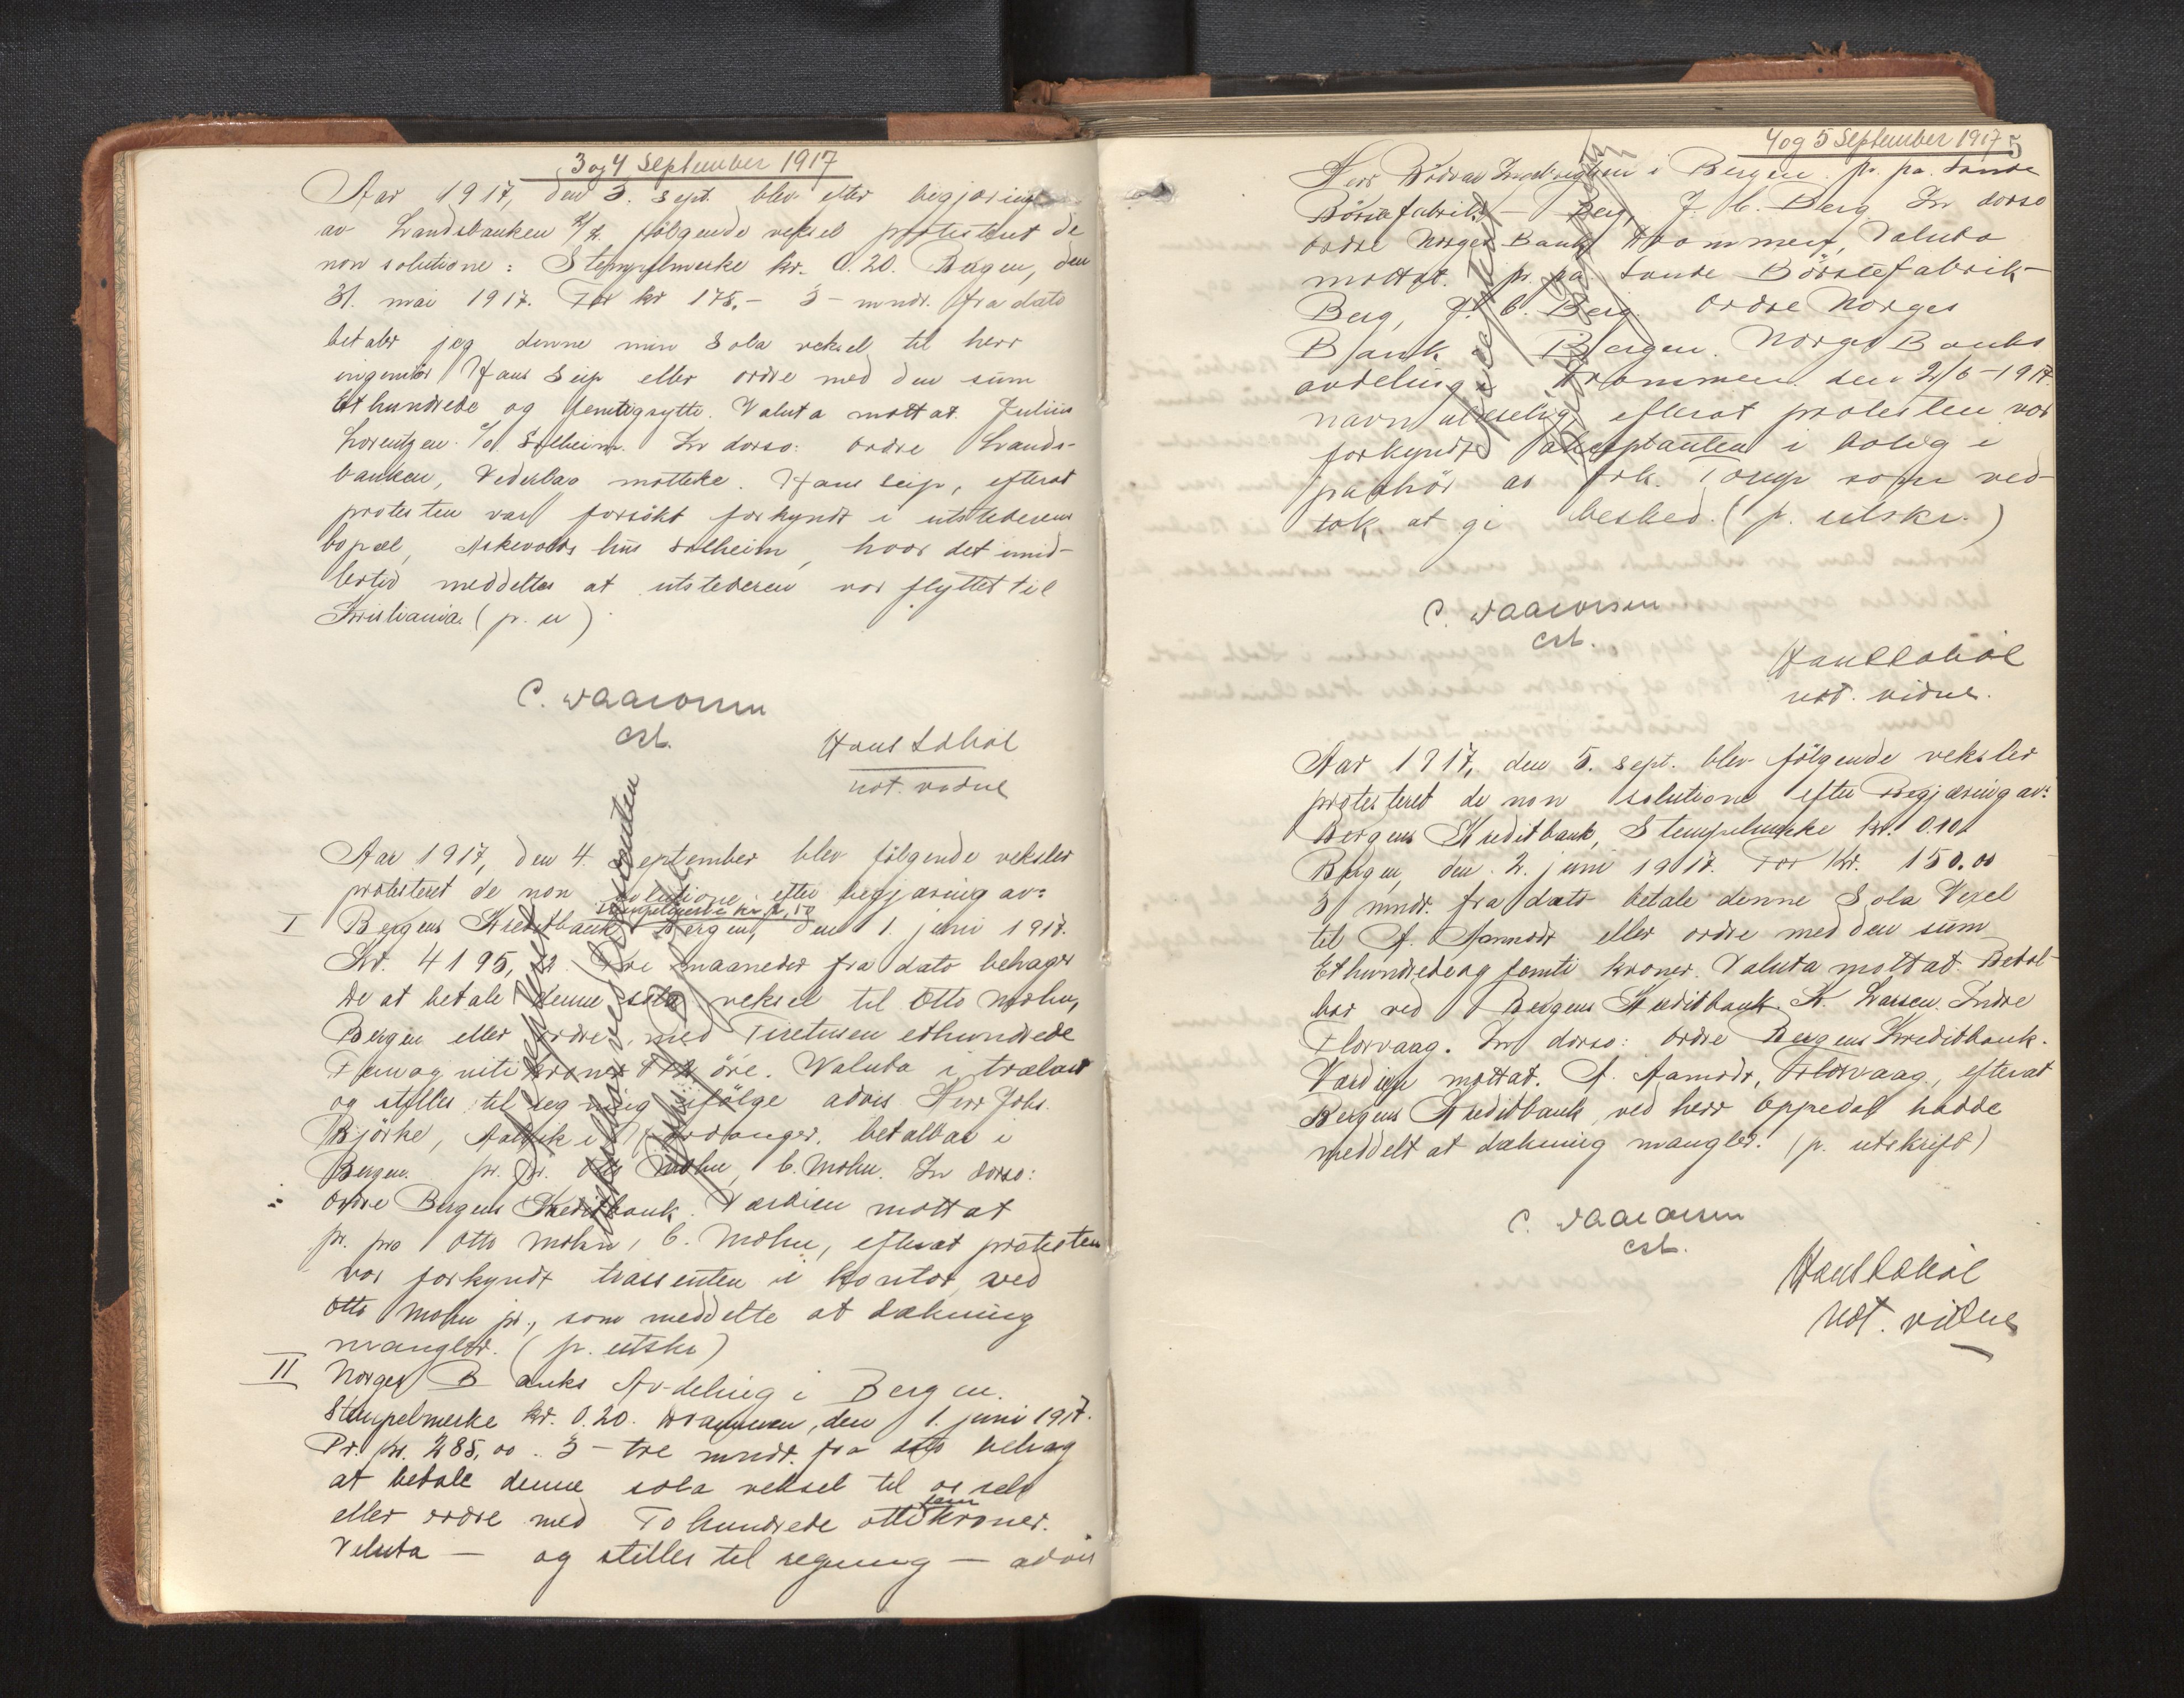 3 og 4 September 1917
Aar 1917, den 3. Sept. blev efter begjæring
av Landsbanken A/S. følgende veksel protesteret de
non solutione: Stempelmerke kr. 0.20. Bergen, den
31. mai 1917. For kr 175,- 3 - mndr. fra dato
betaler jeg denne min Sola veksel til herr
ingeniør Hans Seip eller ordre med den sum
Et hundrede og femtigsytti. Valuta mottat. Julius
Lorentzen. c/o Solheim. In dorso: ordre Lands-
banken, Vederlag mottat. Hans Seip, efterat
protesten var forsökt forkyndt i utstederens
bopæl, Askevolds hus Solheim, hvor det imid-
lertid meddeltes at utstederen var flyttet til
Kristiania. (p. u)
C. Waarorsen
cst.
Hans Lohol
not. vidne
Aar 1917, den 4. September blev følgende veksler
protesteret de non solutione efter begjæring av:
stempelmerke kr. 2,50
I Bergens Kreditbank Bergen, den 1. juni 1917.
Kr. 4195, 12. Tre maaneder fra dato behager
De at betale denne sola veksel til Otto Mohn,
Bergen eller ordre, med Firetusen ethundrede
Femognitti kroner 12 öre. Valuta i trælast
og stilles til regning ifølge advis Herr Johs.
Björke, Aalvik i Hardanger. betalbar i
Bergen. pr. pr. Otto Mohn, C. Mohn. In dorso:
ordre Bergens Kreditbank. Værdien mottat
pr. pro Otto Mohn, C. Mohn, efterat protesten
var forkyndt trassenten i kontor, ved
Otto Mohn jr., som meddelte at dækning
mangler. (p. utskr)
II Norges Banks Avdeling i Bergen.
Stempelmerke kr. 0.20. Drammen, den 1. juni 1917.
Pr. Kr. 285,00. 3 - tre mndr. fra dato behag
at betale denne sola veksel til os selv
eller ordre med To hundrede ottifem kroner.
Valuta — og stilles til regning — advis
4 og 5 September 1917 5
Herr Bödvar Ingebrigtsen i Bergen. pr. pa. Sande
Börstefabrik - Berg, J. C. Berg. In dorso
ordre Norges Bank Drammen, Valuta
mottat. pr. pa. Sande Börstefabrik -
Berg, J. C. Berg. ordre Norges
Bank Bergen. Norges Banks
avdeling i Drammen. den 2/6-1917.
navn ulæselig, efterat protesten var
forkyndt akceptanten i bolig i
paahör av frk. Torup som ved-
tok at gi besked. (p. utskr.)
C. Waarorsen
cst.
Hans Lohol
not. vidne.
Aar 1917, den 5. sept. blev følgende veksler
protesteret de non solutione efter Begjæring av:
Bergens Kreditbank, Stempelmerke kr. 0.10.
Bergen, den 2. juni 1917. For Kr. 150.00
3 mndr. fra dato betale denne Sola Vexel
til A. Aamodt eller ordre med den sum
Ethundredeog femti kroner. Valuta mottat. Betal-
bar ved Bergens Kreditbank. K. Larsen. Indre
Florvaag. In dorso: ordre Bergens Kreditbank.
Værdien mottat. A. Aamodt, Florvaag, efterat
Bergens Kreditbank, ved herr Oppedal hadde
meddelt at dækning mangler. (p. utskrift)
C. Waarorsen
cst.
Hans Lohol
not. vidne